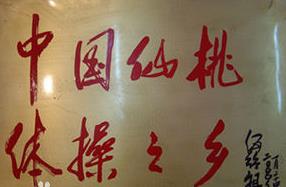 中国仙桃
体操之乡